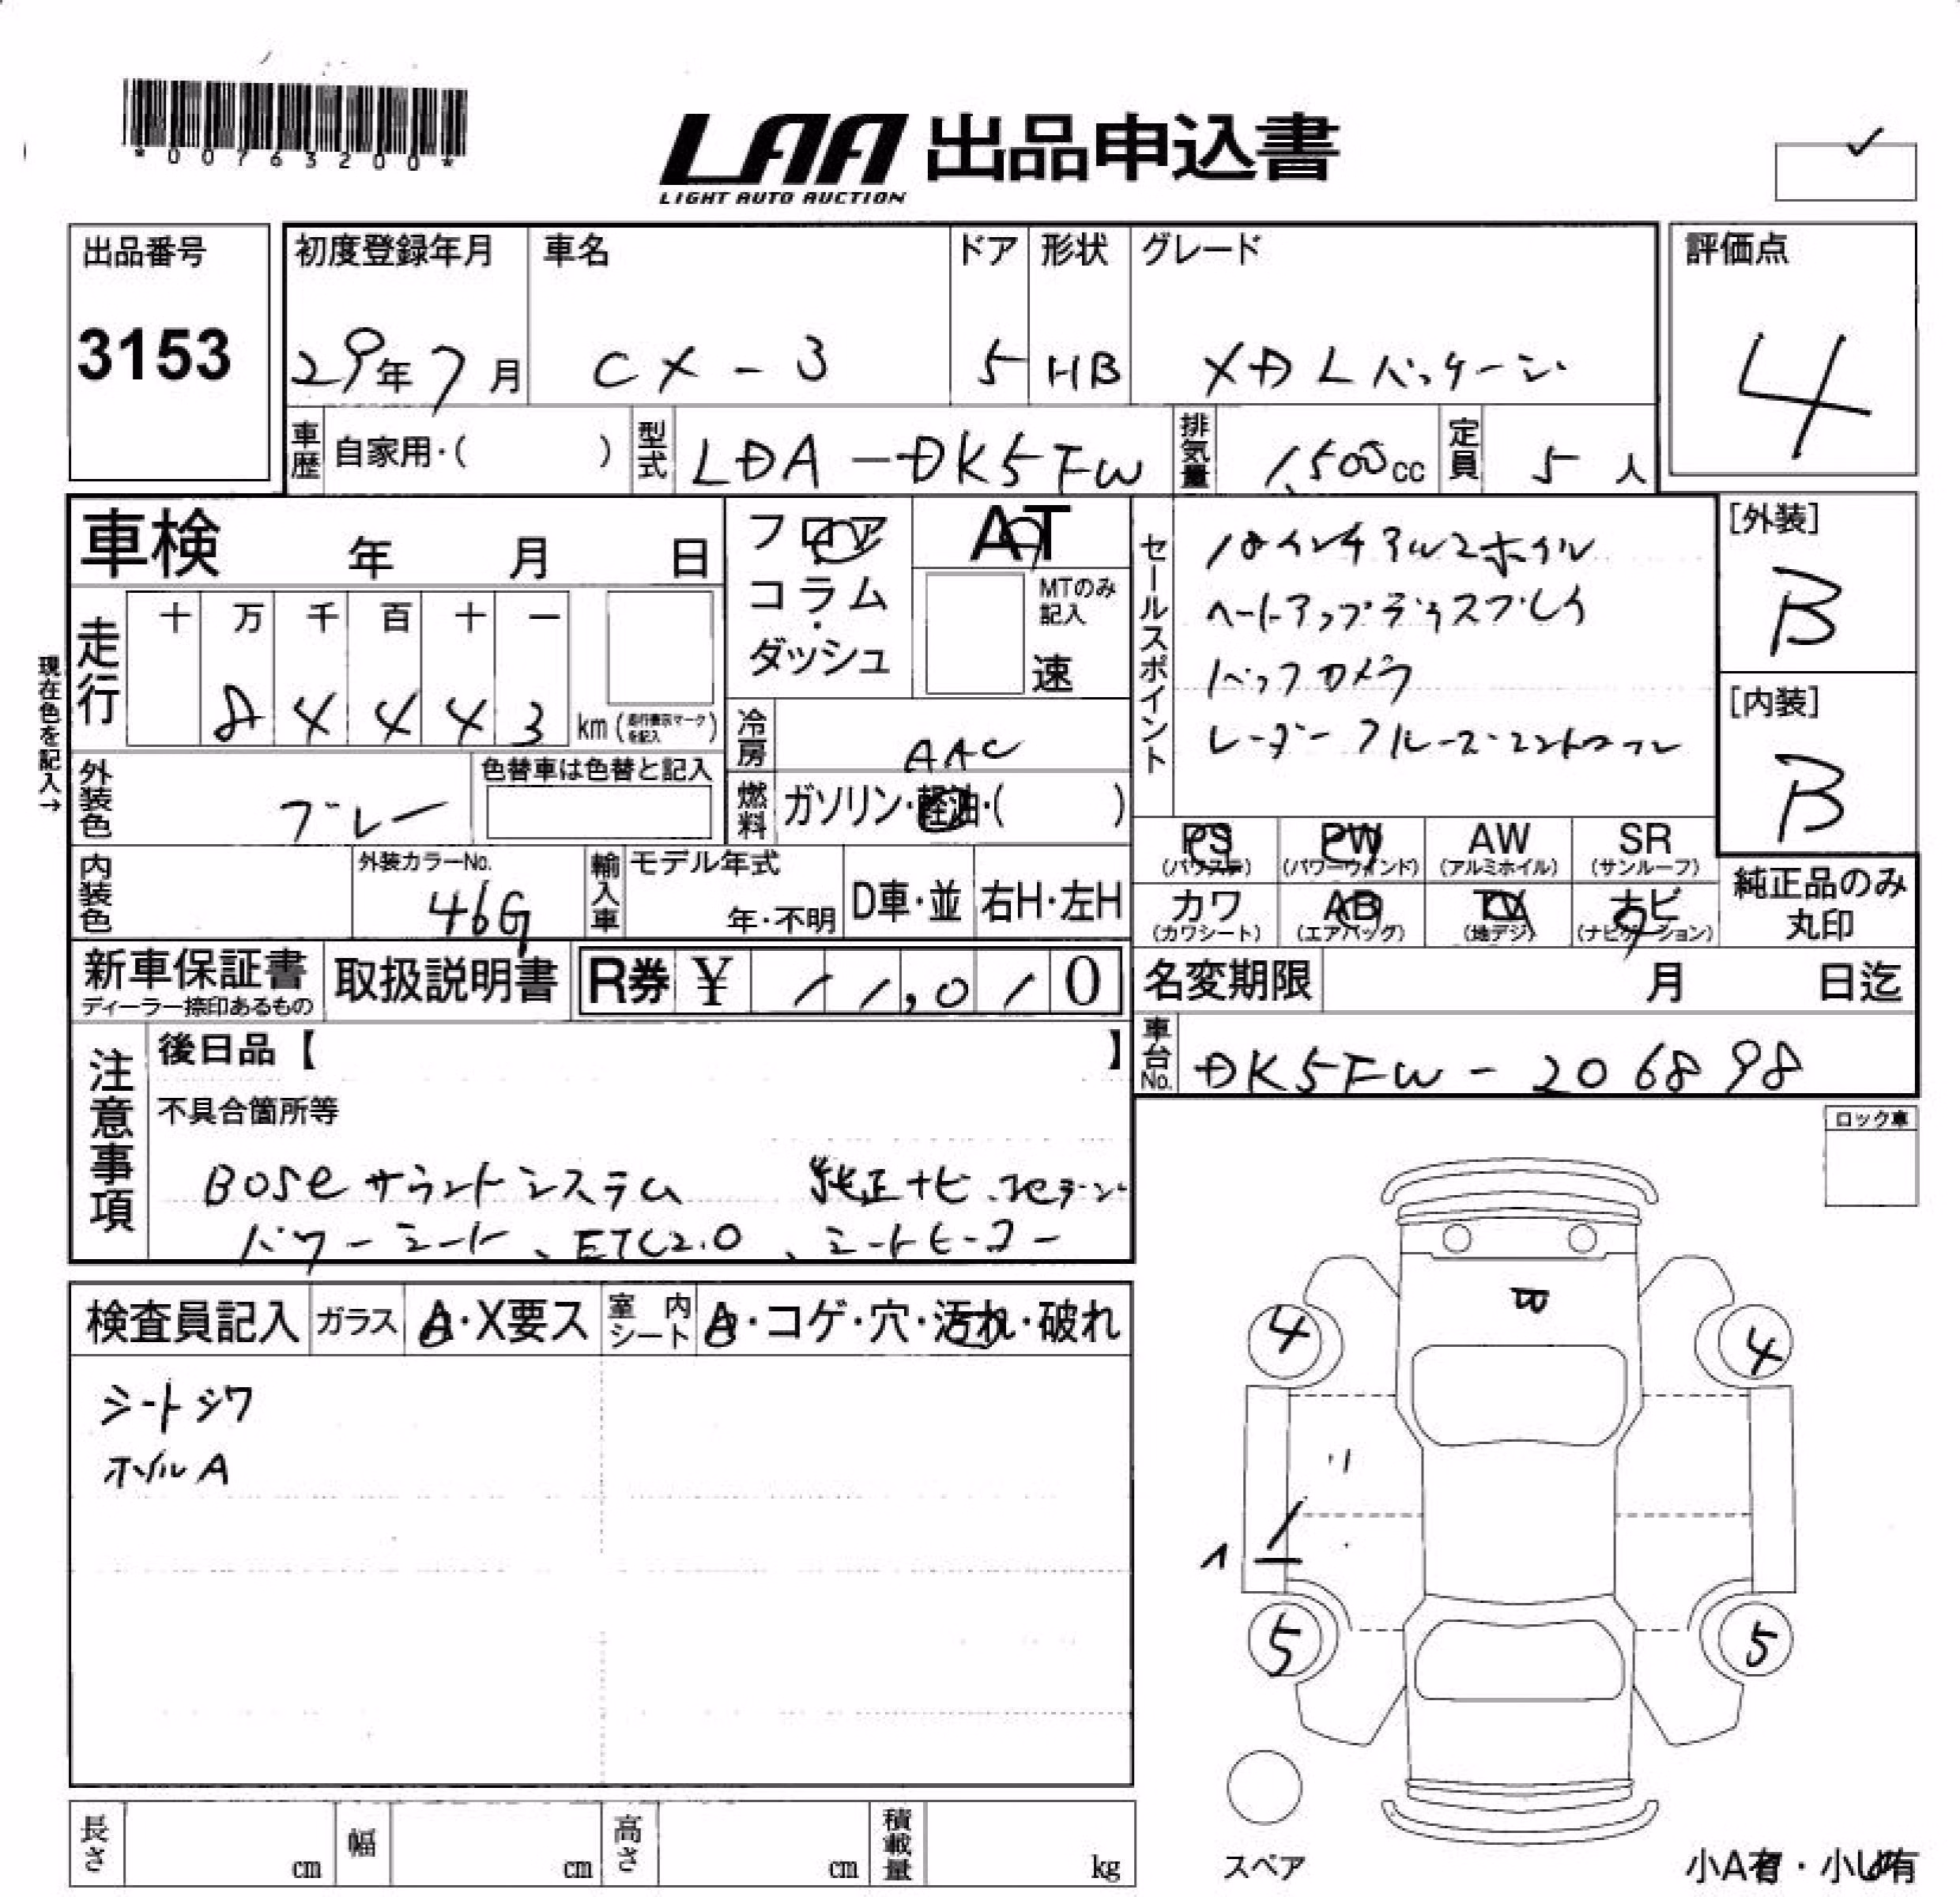 *00763200*
LAA 出品申込書
LIGHT AUTO AUCTION
出品番号
3153
初度登録年月
29年7月
車名
CX-3
ドア
5
形状
HB
グレード
XD Lパッケージ
評価点
4
車歴 自家用・( )
型式 LDA-DK5FW
排気量 1,500cc
定員 5人
車検 年 月 日
現在色を記入→
走行 十 万 千 百 十 一
8 4 4 4 3 km (走行表示マークを記入)
フロア
コラム
・
ダッシュ
AT
MTのみ記入
速
冷房 AAC
燃料 ガソリン・軽油・( )
外装色 グレー
色替車は色替と記入
内装色
外装カラーNo.
46G
輸入車 モデル年式
年・不明
D車・並
右H・左H
セールスポイント
18インチアルミホイル
ヘートアップディスプレイ
バックカメラ
レーダークルーズコントロール
[外装]
B
[内装]
B
PS (パワステ)
PW (パワーウィンド)
AW (アルミホイル)
SR (サンルーフ)
カワ (カワシート)
AB (エアバッグ)
TV (地デジ)
ナビ (ナビゲーション)
純正品のみ
丸印
新車保証書
ディーラー捺印あるもの
取扱説明書
R券 ¥ 11,010
名変期限 月 日迄
車台No. DK5FW-206898
注意事項
後日品【 】
不具合箇所等
BOSEサウンドシステム 純正ナビ
パワーシート、ETC2.0、シートヒーター
ロック車
検査員記入
ガラス A・X要ス
室内シート A・コゲ・穴・汚れ・破れ
シートシワ
ホイルA
4
4
1
5
5
スペア
小A有・小U有
長さ cm
幅 cm
高さ cm
積載量 kg